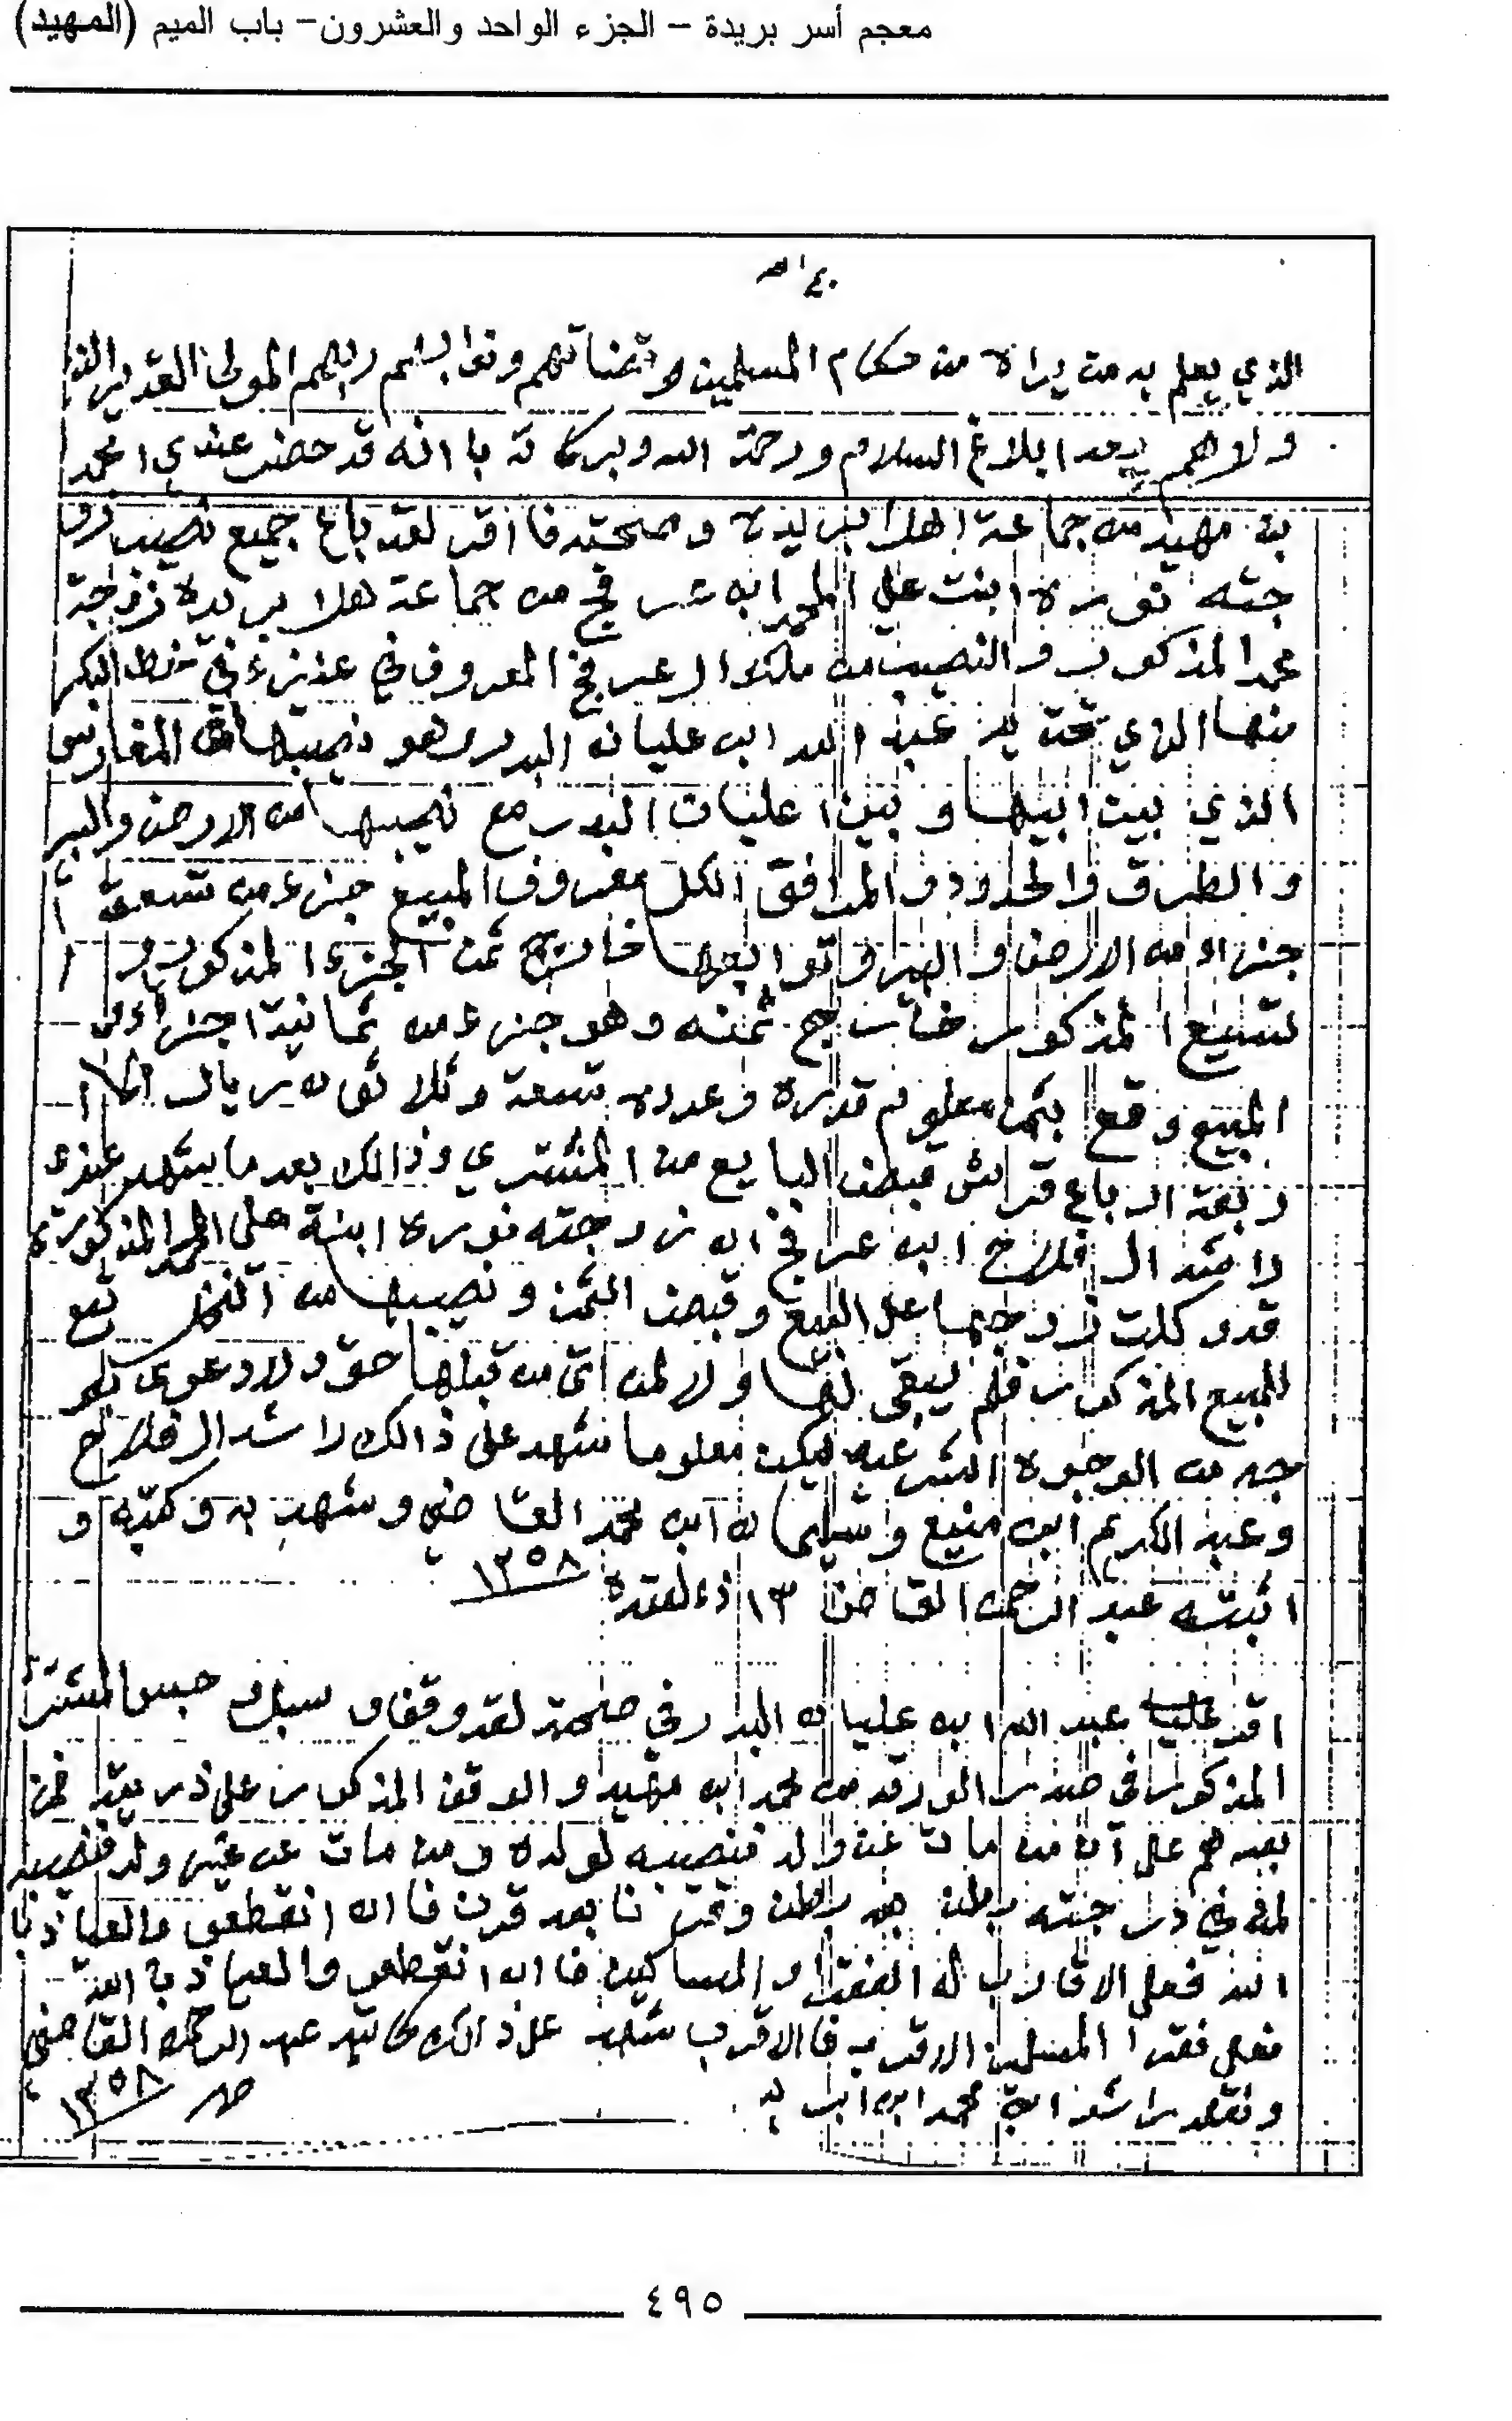 معجم أسر بريدة – الجزء الواحد والعشرون– باب الميم (المهيد)
الذي يعلم به من يراه من حكام المسلمين وقضاتهم ونوابهم المولى القدير الذي
ولاهم بعد ابلاغ السلام ورحمة الله وبركاته باانه قد حضر عندي محمد
بن مهيد من جماعة اهل بريدة وصحته فااقر لقد باع جميع نصيب زو
جته نورة ابنت علي المحمد ابن عرفج من جماعة هل بريدة زوجة
محمد المذكور والنصيب من ملك ال عرفج المعروف في
منها الذي تحت يد عبد الله ابن عليان البدر وهو نصيبها من المغارس
الذي بين ابيها وبين عليان البدر مع نصيبها من الارض والبير
والطرق والحدود والمرافق الكل معروف المبيع جزء من تسعة
جزاء من الارض والبير وتوابعها خارج ثمن الجزء المذكور
تسيع المذكور خارج ثمنه وهو جزء من ثمانية اجزاء من
المبيع وقع بثمن معلوم قدره وعدده تسعة وثلاثون ريال
وبعة ارباع قرش قبضه البايع من المشتري وذالك بعد ما شهد عندي
راشد ال فلاح ابن عرفج ان زوجته نورة ابنة علي المحمد المذكورة
قد وكلت زوجها على البيع وقبض الثمن ونصيبها من النخل تبع
للمبيع المذكور فلم يبقى لها ولا لمن اتى من قبلها حق ولا دعوى
جه من الوجوه الشرعيه ليكن معلوما شهد على ذالك راشد ال فلاح
وعبد الكريم ابن منيع وسليمان ابن محمد القاضي وشهد به وكتبه و
اثبته عبد الرحمن القاضي ١٣ ذ القعدة ١٣٥٨
اقر عبد الله ابن عليان البدر في صحته لقد وقف وسبل وحبس المشترا
المذكور في صدر الورقه من محمد ابن مهيد والوقف المذكور على ذريته
بعدهم على ان من مات عن ولد فنصيبه لولده ومن مات عن غير ولد فنصيبه
لمن في درجته بطن بعد بطن وقرنا بعد قرن فاان انقطعو والعياذ با
الله فعلى الاقارب له الفقرا والمساكين فاان انقطعو والعياذ با الله
فعلى فقرا المسلمين الاقرب فاالاقرب شهد على ذالك كاتبه عبد الرحمن القاضي
راشد محمد ابن ١٣٥٨
٤٩٥